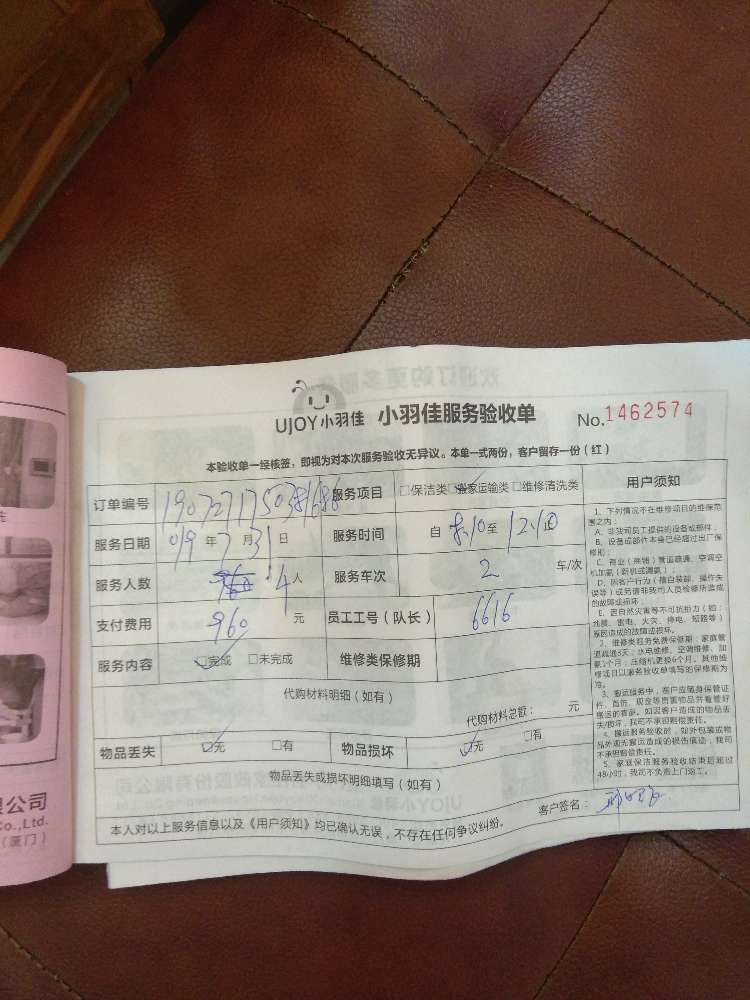 UJOY小羽佳 小羽佳服务验收单 No.1462574
本验收单一经核签，即视为对本次服务验收无异议。本单一式两份，客户留存一份（红）
订单编号 190727175038168 服务项目 □保洁类 ☑搬家运输类 □维修清洗类
服务日期 019 年 7 月 31 日 服务时间 自 8:10 至
服务人数 4 人 服务车次 2 车/次
支付费用 960 元 员工工号（队长） 6616
服务内容 ☑完成 □未完成 维修类保修期
代购材料明细（如有）
代购材料总额： 元
物品丢失 ☑无 □有 物品损坏 ☑无 □有
物品丢失或损坏明细填写（如有）
客户签名：
本人对以上服务信息以及《用户须知》均已确认无误，不存在任何争议纠纷。
用户须知
1、下列情况不在维修项目的维保范
围之内：
A、非我司员工提供的设备或部件；
B、设备或部件本身已经超过出厂保
修期；
C、商业（商铺）管道疏通、空调空
机加氟（新机或漏氟）；
D、因客户行为（擅自装卸、操作失
误等）或另请非我司人员检修所造成
的故障或损坏；
E、因自然灾害等不可抗拒力（如：
地震、雷电、火灾、停电、短路等）
等原因造成的故障或损坏。
2、维修类服务免费保修期：家庭管
道疏通3天；水电维修、空调维修、加
氟1个月；压缩机更换6个月。其他维
修项目以服务验收单填写的保修期为
准。
3、搬运服务中，客户应随身保管证
件、首饰、现金等贵重物品并看管好
搬运的物品。如因客户造成的物品丢
失/损坏，我司不承担赔偿责任。
4、搬运服务验收时，如外包装或物
品外观无搬运造成的损伤痕迹，我司
不承担赔偿责任。
5、家庭保洁服务验收结束后超过
48小时，我司不负责上门返工。
公司
Co.,Ltd.
（厦门）